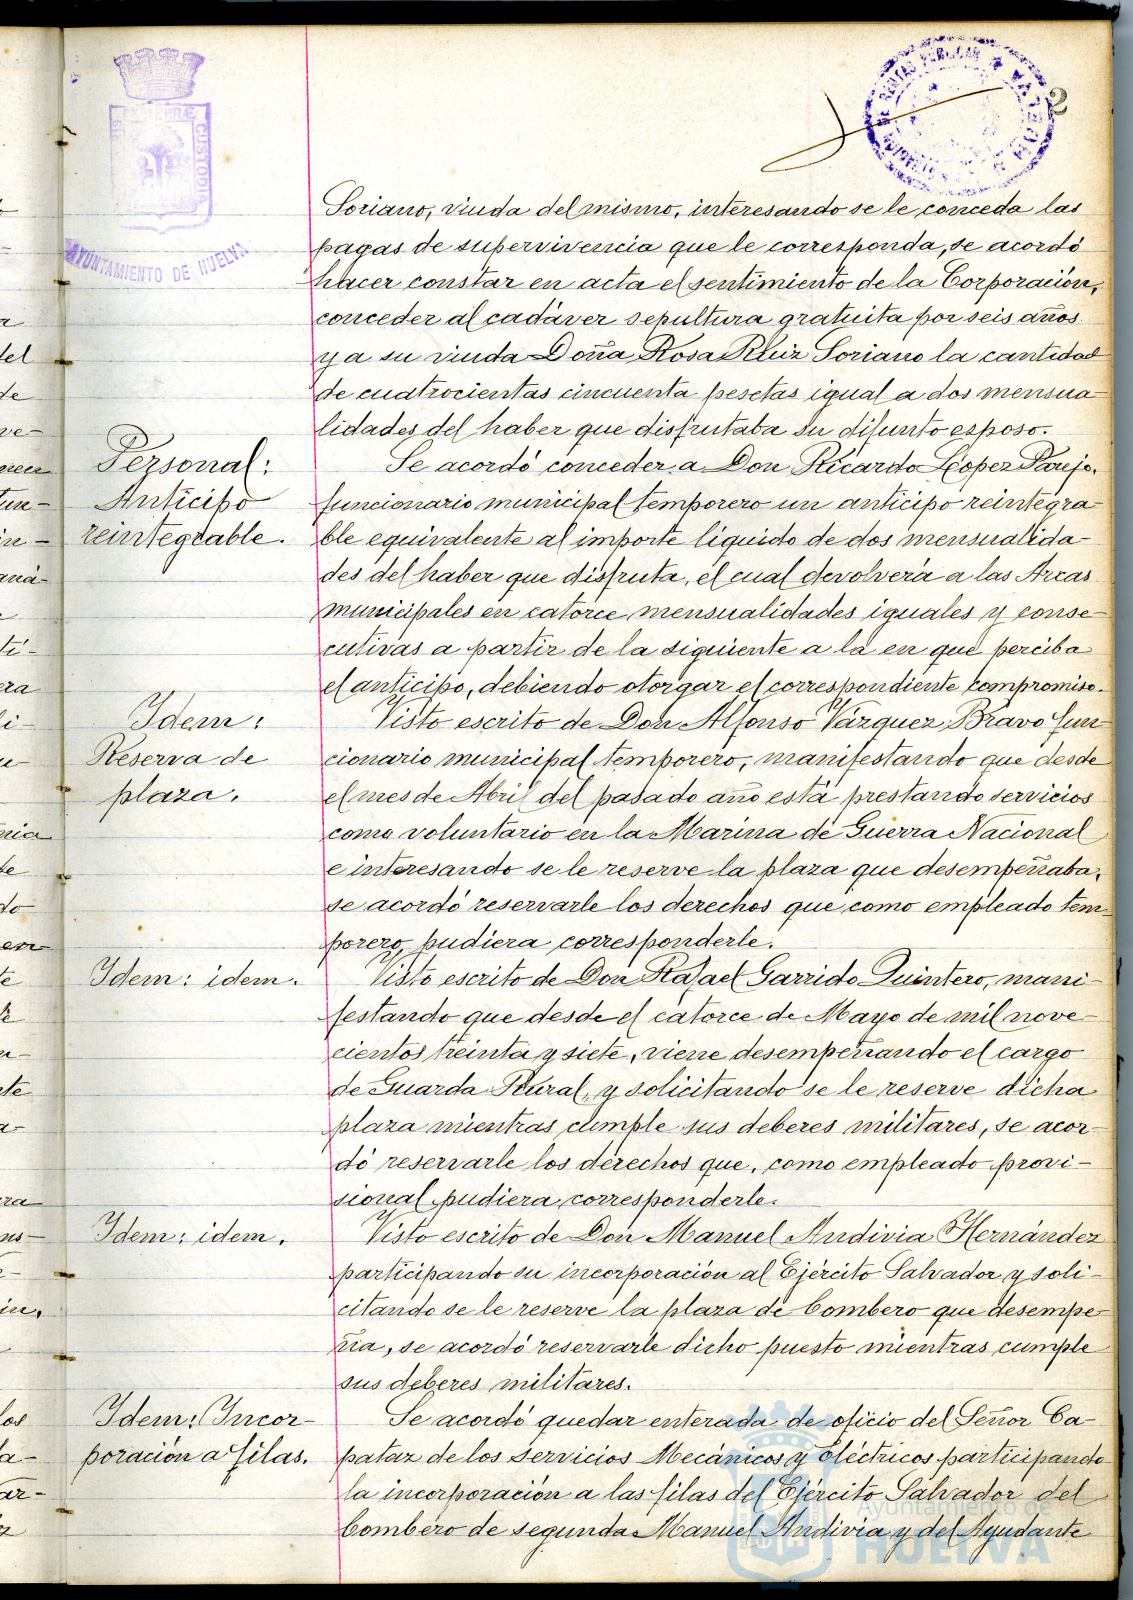 2
AYUNTAMIENTO DE HUELVA
Soriano, viuda del mismo, interesando se le conceda las
pagas de supervivencia que le corresponda, se acordó
hacer constar en acta el sentimiento de la Corporación,
conceder al cadáver sepultura gratuita por seis años
y a su viuda Doña Rosa Ruiz Soriano la cantidad
de cuatrocientas cincuenta pesetas igual a dos mensua-
lidades del haber que disfrutaba su difunto esposo.
Personal:
Anticipo
reintegrable.
Se acordó conceder a Don Ricardo López Parejo,
funcionario municipal temporero un anticipo reintegra-
ble equivalente al importe líquido de dos mensualida-
des del haber que disfruta, el cual devolverá a las Arcas
municipales en catorce mensualidades iguales y conse-
cutivas a partir de la siguiente a la en que perciba
el anticipo, debiendo otorgar el correspondiente compromiso.
Idem:
Reserva de
plaza.
Visto escrito de Don Alfonso Vázquez Bravo fun-
cionario municipal temporero, manifestando que desde
el mes de Abril del pasado año está prestando servicios
como voluntario en la Marina de Guerra Nacional
e interesando se le reserve la plaza que desempeñaba,
se acordó reservarle los derechos que como empleado tem-
porero pudiera corresponderle.
Idem: idem.
Visto escrito de Don Rafael Garrido Quintero, mani-
festando que desde el catorce de Mayo de mil nove-
cientos treinta y siete, viene desempeñando el cargo
de Guarda Rural, y solicitando se le reserve dicha
plaza mientras cumple sus deberes militares, se acor-
dó reservarle los derechos que, como empleado provi-
sional pudiera corresponderle.
Idem: idem.
Visto escrito de Don Manuel Andivia Hernández
participando su incorporación al Ejército Salvador y soli-
citando se le reserve la plaza de bombero que desempe-
ña, se acordó reservarle dicho puesto mientras cumple
sus deberes militares.
Idem: Incor-
poración a filas.
Se acordó quedar enterada de oficio del Señor Ca-
pataz de los servicios Mecánicos y Eléctricos participando
la incorporación a las filas del Ejército Salvador del
bombero de segunda Manuel Andivia y del Ayudante
Ayuntamiento de
HUELVA